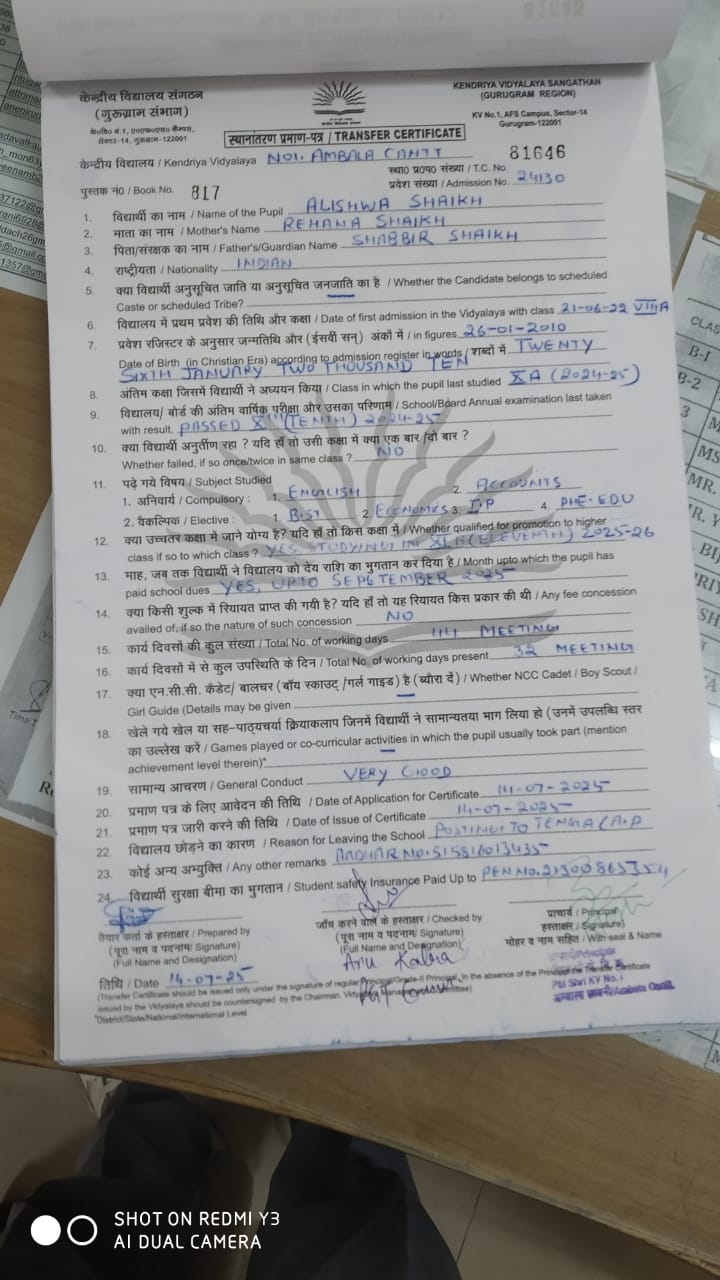 81646
केन्द्रीय विद्यालय संगठन
(गुरूग्राम संभाग)
के०वि० नं.1, ए०एफ०एस० कैम्पस,
सेक्टर-14, गुरूग्राम-122001
KENDRIYA VIDYALAYA SANGATHAN
(GURUGRAM REGION)
KV No.1, AFS Campus, Sector-14
Gurugram-122001
स्थानांतरण प्रमाण-पत्र / TRANSFER CERTIFICATE
केन्द्रीय विद्यालय / Kendriya Vidyalaya NO1. AMBALA CANTT
81646
स्था० प्र०प० संख्या / T.C. No.
पुस्तक नं० / Book No. 817
प्रवेश संख्या / Admission No. 24130
1. विद्यार्थी का नाम / Name of the Pupil ALISHWA SHAIKH
2. माता का नाम / Mother's Name REHANA SHAIKH
3. पिता/संरक्षक का नाम / Father's/Guardian Name SHABBIR SHAIKH
4. राष्ट्रीयता / Nationality INDIAN
5. क्या विद्यार्थी अनुसूचित जाति या अनुसूचित जनजाति का है / Whether the Candidate belongs to scheduled
Caste or scheduled Tribe?
6. विद्यालय में प्रथम प्रवेश की तिथि और कक्षा / Date of first admission in the Vidyalaya with class 21-06-22 VIII A
7. प्रवेश रजिस्टर के अनुसार जन्मतिथि और (ईसवीं सन्) अंकों में / in figures 26-01-2010
Date of Birth (in Christian Era) according to admission register in words / शब्दों में TWENTY
SIXTH JANUARY TWO THOUSAND TEN
8. अंतिम कक्षा जिसमें विद्यार्थी ने अध्ययन किया / Class in which the pupil last studied XA (2024-25)
9. विद्यालय/ बोर्ड की अंतिम वार्षिक परीक्षा और उसका परिणाम / School/Board Annual examination last taken
with result. PASSED X (TENTH) 2024-25
10. क्या विद्यार्थी अनुर्तीण रहा ? यदि हाँ तो उसी कक्षा में क्या एक बार /दो बार ?
Whether failed, if so once/twice in same class ? NO
11. पढ़े गये विषय / Subject Studied
1. अनिवार्य / Compulsory : 1. ENGLISH 2. ACCOUNTS
2. वैकल्पिक / Elective : 1. B.ST 2. ECONOMICS 3. I.P 4. PHE. EDU
12. क्या उच्चतर कक्षा में जाने योग्य है? यदि हाँ तो किस कक्षा में / Whether qualified for promotion to higher
class if so to which class ? YES STUDYING IN XI A (ELEVENTH) 2025-26
13. माह, जब तक विद्यार्थी ने विद्यालय को देय राशि का भुगतान कर दिया है / Month upto which the pupil has
paid school dues YES, UPTO SEPETEMBER 2025
14. क्या किसी शुल्क में रियायत प्राप्त की गयी है? यदि हाँ तो यह रियायत किस प्रकार की थी / Any fee concession
availed of, if so the nature of such concession NO
15. कार्य दिवसों की कुल संख्या / Total No. of working days 44 MEETING
16. कार्य दिवसों में से कुल उपस्थिति के दिन / Total No. of working days present 32 MEETING
17. क्या एन.सी.सी. कैडेट/ बालचर (बॉय स्काउट /गर्ल गाइड) है (ब्यौरा दें) / Whether NCC Cadet / Boy Scout /
Girl Guide (Details may be given
18. खेले गये खेल या सह-पाठ्यचर्या क्रियाकलाप जिनमें विद्यार्थी ने सामान्यतया भाग लिया हो (उनमें उपलब्धि स्तर
का उल्लेख करें / Games played or co-curricular activities in which the pupil usually took part (mention
achievement level therein)*
19. सामान्य आचरण / General Conduct VERY GOOD
20. प्रमाण पत्र के लिए आवेदन की तिथि / Date of Application for Certificate 14-07-2025
21. प्रमाण पत्र जारी करने की तिथि / Date of Issue of Certificate 14-07-2025
22. विद्यालय छोड़ने का कारण / Reason for Leaving the School POSTING TO TENGA (A.P
23. कोई अन्य अभ्युक्ति / Any other remarks AADHAR NO.
24. विद्यार्थी सुरक्षा बीमा का भुगतान / Student safety Insurance Paid Up to PEN NO. 21300865354
तैयार कर्ता के हस्ताक्षर / Prepared by
(पूरा नाम व पदनाम/ Signature)
(Full Name and Designation)
जाँच करने वाले के हस्ताक्षर / Checked by
(पूरा नाम व पदनाम/ Signature)
(Full Name and Designation)
Anu Kalra
प्राचार्य / Principal
हस्ताक्षर / Signature)
मोहर व नाम सहित / With seal & Name
तिथि / Date 14-07-25
(Transfer Certificate should be issued only under the signature of regular Principal/Grade-II Principal, In the absence of the Principal the Transfer Certificate
issued by the Vidyalaya should be countersigned by the Chairman, Vidyalaya Management Committee)
*District/State/National/International Level
प्राचार्य/Principal
PM Shri KV No. 1
अम्बाला छावनी/Ambala Cantt.
CLAS
B-I
B-2
3
MS
MR.
SHOT ON REDMI Y3
AI DUAL CAMERA